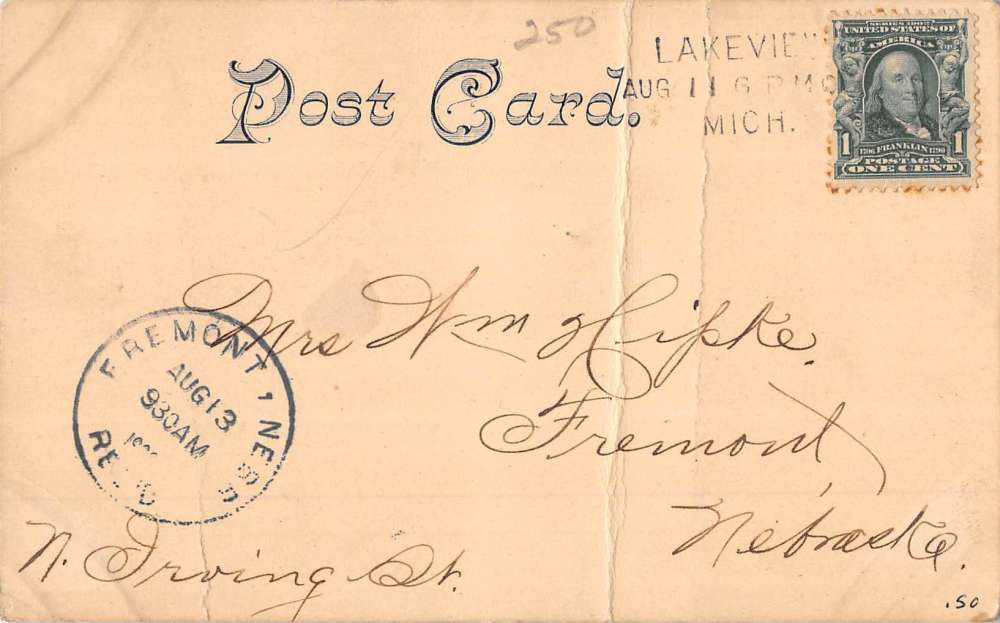 250
Post Card.
LAKEVIE
AUG 11 6 PM
MICH.
SERIES 1902
UNITED STATES OF
AMERICA
1 1706 FRANKLIN 1790 1
POSTAGE
ONE CENT
Mrs Wm Hipke.
Fremont,
Nebraska.
N. Irving St.
FREMONT, NEBR
AUG 13
930AM
REC'D
.50